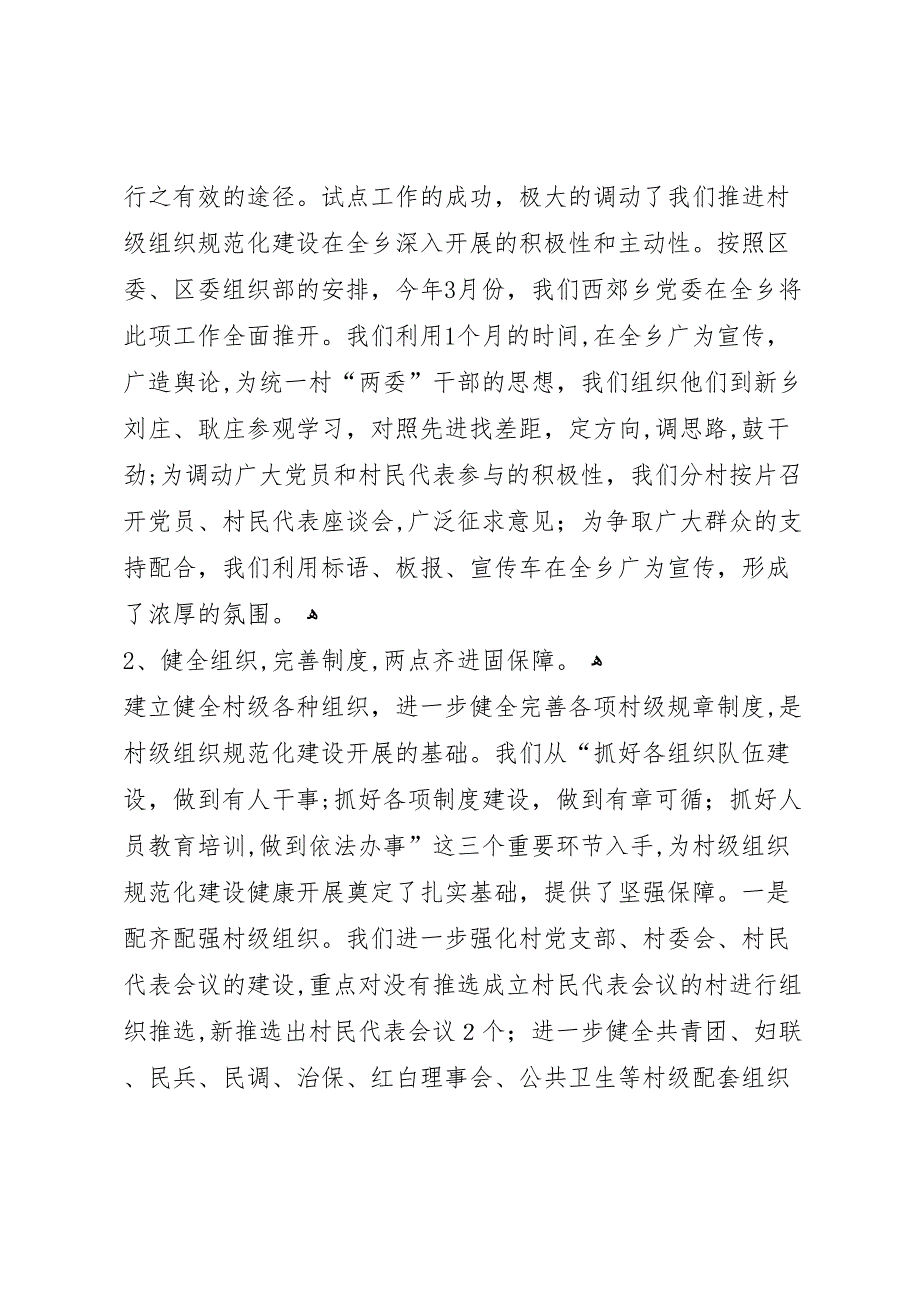 行之有效的途径。试点工作的成功，极大的调动了我们推进村
级组织规范化建设在全乡深入开展的积极性和主动性。按照区
委、区委组织部的安排，今年3月份，我们西郊乡党委在全乡将
此项工作全面推开。我们利用1个月的时间,在全乡广为宣传，
广造舆论,为统一村“两委”干部的思想，我们组织他们到新乡
刘庄、耿庄参观学习，对照先进找差距，定方向,调思路,鼓干
劲;为调动广大党员和村民代表参与的积极性，我们分村按片召
开党员、村民代表座谈会,广泛征求意见；为争取广大群众的支
持配合，我们利用标语、板报、宣传车在全乡广为宣传，形成
了浓厚的氛围。 ﻫ
2、健全组织,完善制度,两点齐进固保障。 ﻫ
建立健全村级各种组织，进一步健全完善各项村级规章制度,是
村级组织规范化建设开展的基础。我们从“抓好各组织队伍建
设，做到有人干事;抓好各项制度建设，做到有章可循；抓好人
员教育培训,做到依法办事”这三个重要环节入手,为村级组织
规范化建设健康开展奠定了扎实基础，提供了坚强保障。一是
配齐配强村级组织。我们进一步强化村党支部、村委会、村民
代表会议的建设,重点对没有推选成立村民代表会议的村进行组
织推选,新推选出村民代表会议2个；进一步健全共青团、妇联
、民兵、民调、治保、红白理事会、公共卫生等村级配套组织